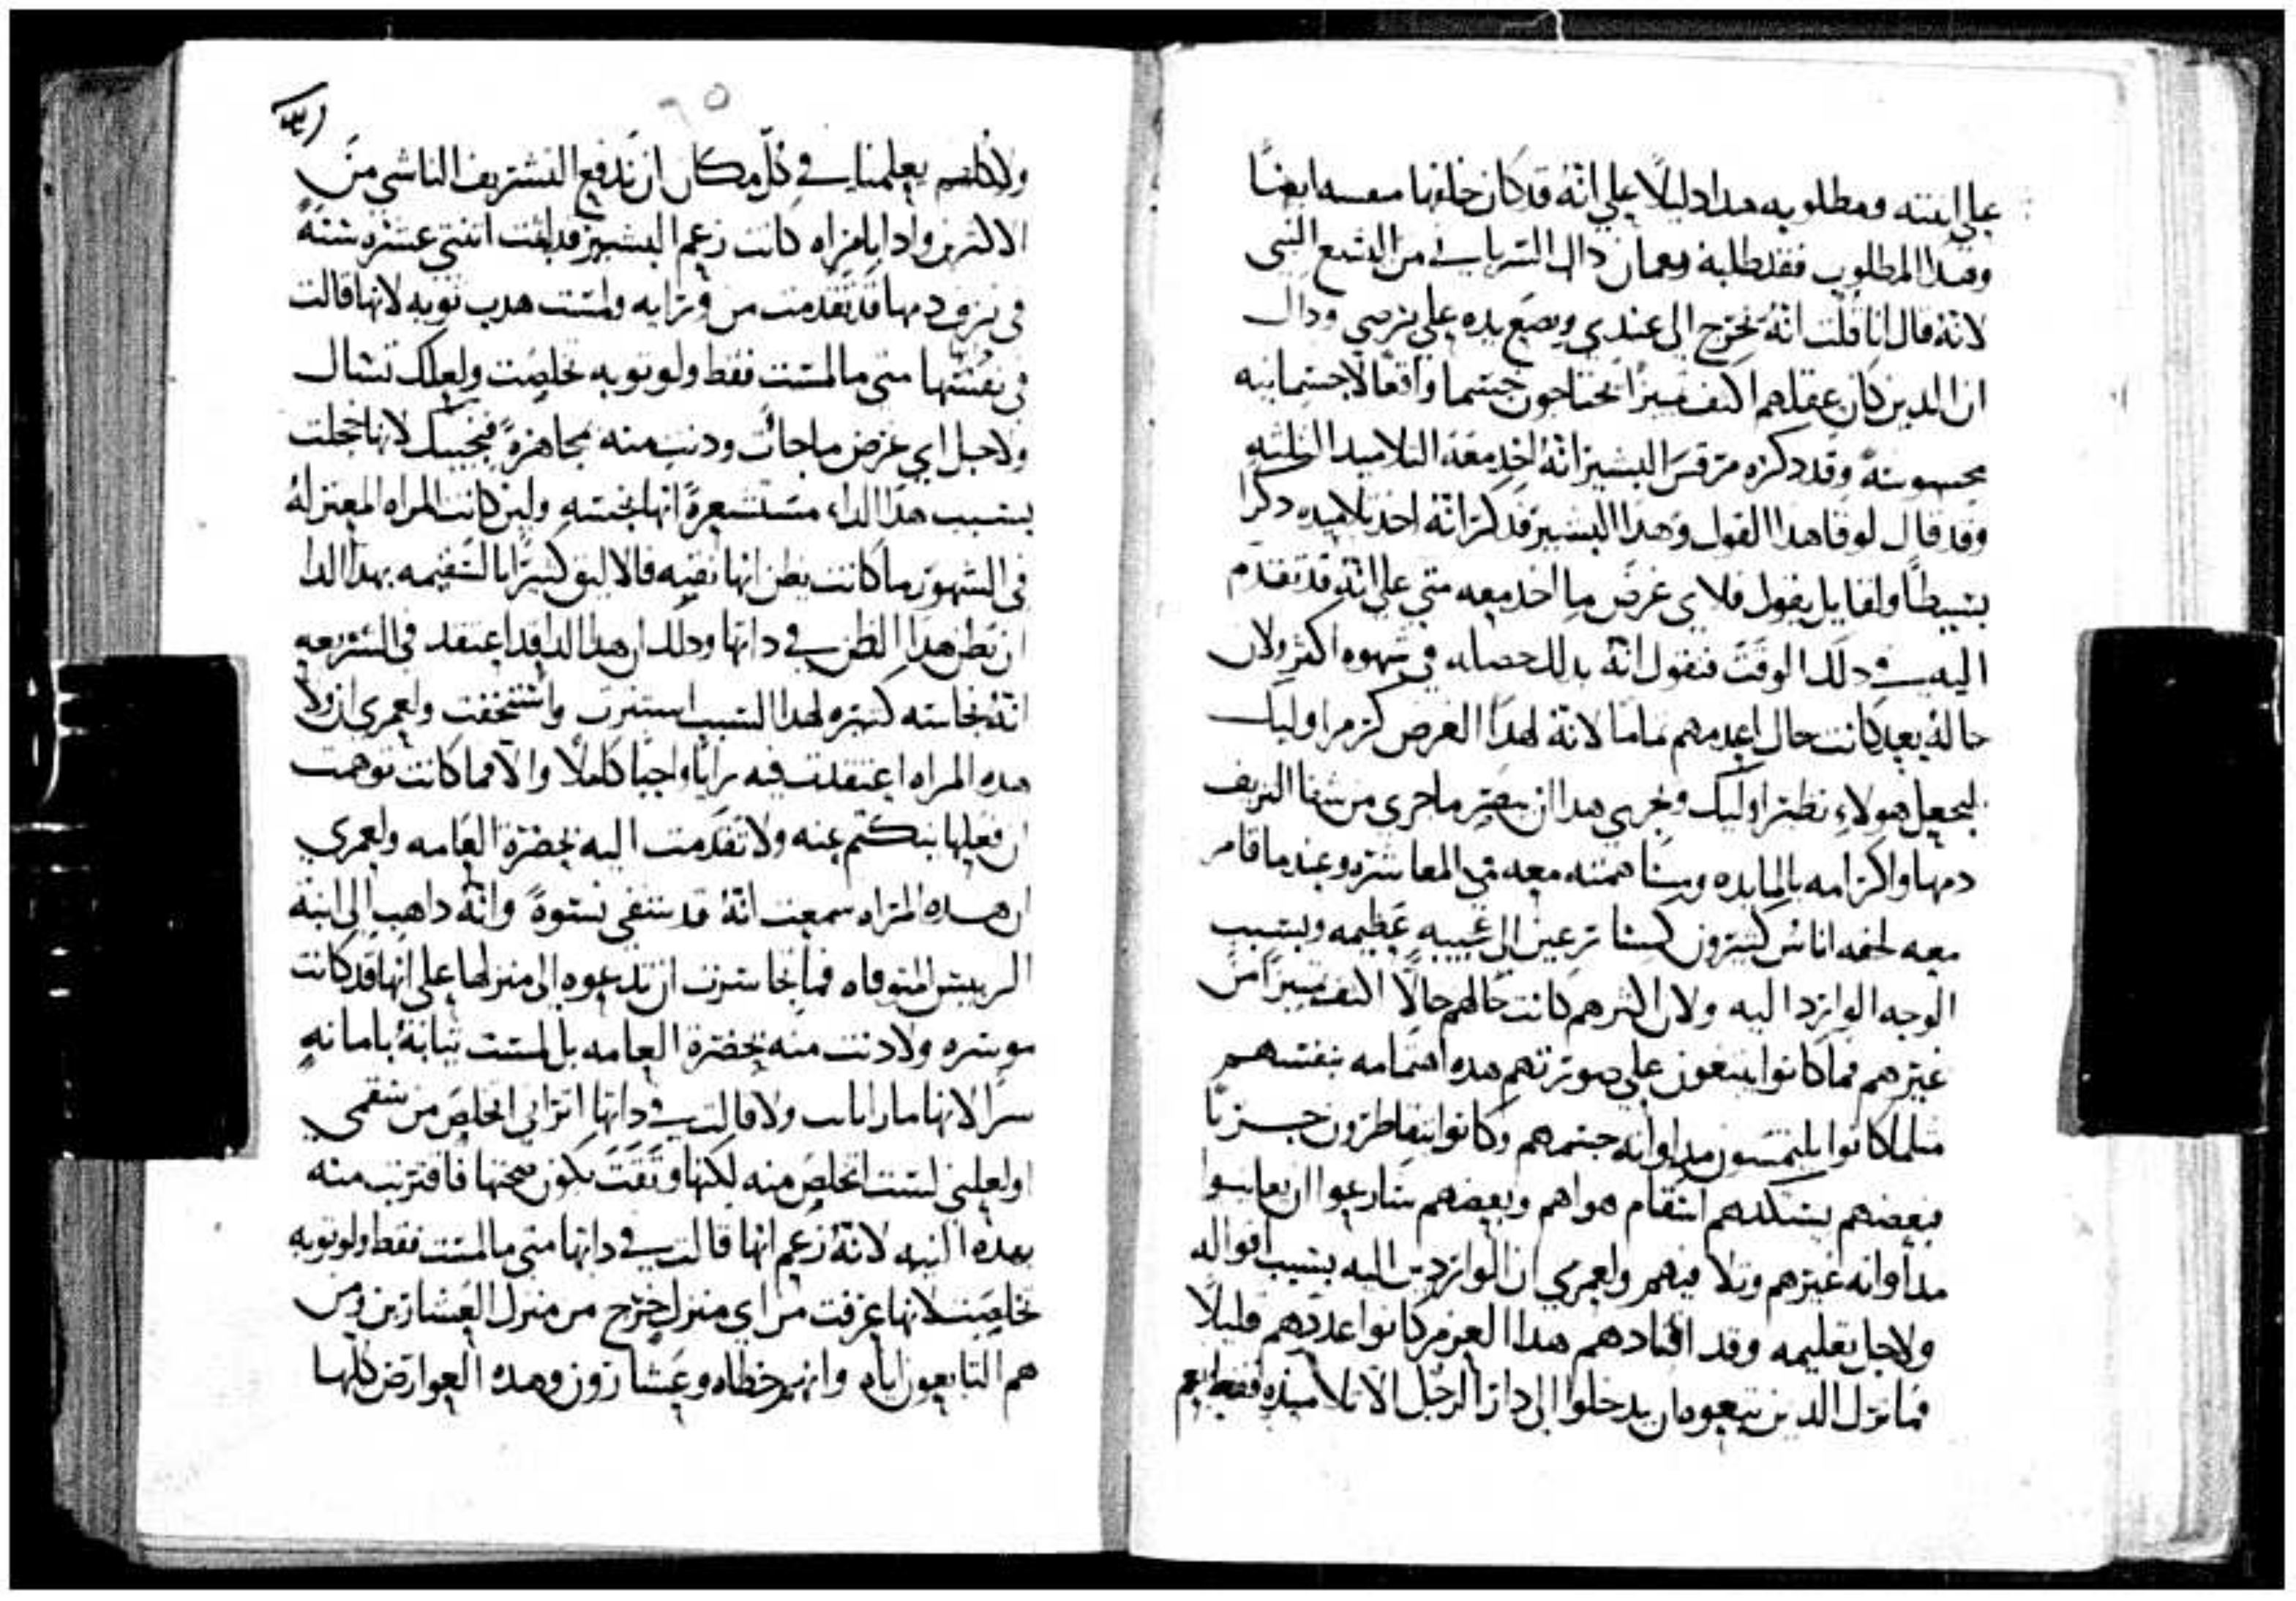 علي ابنته ومطلوبه هدا دليلًا علي انهُ قد كان خلفها ايضًا
وهدا المطلوب فقد طلبهُ نعمان داك السرياني من النبي
لانهُ قال انا قلت انهُ يخرج الى عندي ويضع يده علي برصي وداك
ان الدين كان عقلهم اكثف يحتاجون جسما وافعالًا جسمانيه
محسوسهً وقد دكره مرقس البشير انهُ اخد معهُ التلاميد الثلثه
وقد قال لوقا هدا القول وهدا البشير قد دكر انهُ اخد تلاميده دكرا
بسيطًا ولقايل يقول فلاي غرض ما اخد معه متي علي انهُ قد تقدم
اليه في دلك الوقت فنقول انهُ بدلك حصله في شهوه اكثر ولان
حالهُ بعد كانت حال اعدمهم تماما لانهُ لهدا الغرض كرم اوليك
ليجعل هولاء نظير اوليك وبجزي هدا ان يبصر ما جري من شفا النزيف
دمها واكرامه بالمايده ومساهمته معه في المعاشره وعند ما قام
معه لحقه اناس كثيرون كسارعين الى عجيبه عظيمه وبسبب
الوجه الوارد اليه ولان اكثرهم كانت حالهم حالًا اكثف من
غيرهم فما كانوا يبتغون علي صورتهم هده اهتمامه بنفسهم
مثلما كانوا يلتمسون مداواته جسمهم وكانوا يتقاطرون حزبًا
فبعضهم بشكدهم انتقام هواهم وبعضهم سارعوا ان يعاينوا
مداواته غيرهم وتلافيهم ولعمري ان الواردين اليه بسبب اقواله
ولاجل تعليمه وقد اقتادهم هدا العزم كانوا عددهم قليلًا
فما ترك الدين تبعوه ان يدخلوا الى دار الرجل الا تلاميذه فقط
ولا كلهم يعلمنا في كل مكان ان ندفع التشريف الناشي من
الاكثرين وادا بامراه كانت زعم البشير قد لبثت اثنتي عشره سنهً
في نزف دمها قد تقدمت من ورايه ولمست هدب ثوبه لانها قالت
في نفسها متى ما لمست فقط ولو ثوبه خلصت ولعلك تسال
ولاجل اي غرض ما جات ودنت منه مجاهرهً فنجيبك لانها خجلت
بسبب هدا الداء مستشعرهً انها نجسهٍ ولين كانت المراه المعتزلهُ
في الشهور ما كانت يظن انها نقيه فالاليق كثيرًا بالسقيمه بهدا الدا
ان تظن هدا الظن في داتها ودلك ان هدا الدا قد اعتقد في الشريعه
انهُ نجاسته كثيره لهدا السبب استترت واستخفت ولعمري ان ولا
هده المراه اعتقدت فيه رايًا واجبًا كاملًا والا فما كانت توهمت
ان فعلها ينكتم عنه ولا تقدمت اليه بحضرة العامه ولعمري
ان هده المراه سمعت انهُ قد شفى نسوةً وانهُ داهب الى ابنة
الرييس المتوفاه فما تجاسرت ان تدعوه الى منزلها علي انها قد كانت
موسره ولا دنت منه بحضرة العامه بل لمست ثيابهُ بامانهٍ
سرًا لانها ما رتابت ولا قالت في داتها اتراني اتخلص من سقمي
اولعلني لست اتخلص منه لكنها وثقت بكون صحتها فاقتربت منه
بهده النيه لانهُ زعم انها قالت في داتها متى ما لمست فقط ولو ثوبه
تخلصت لانها عرفت من اي منزل خرج من منزل العشارين ومن
هم التابعون اياه وانهم خطاه وعشارون وهده العوارض كلها